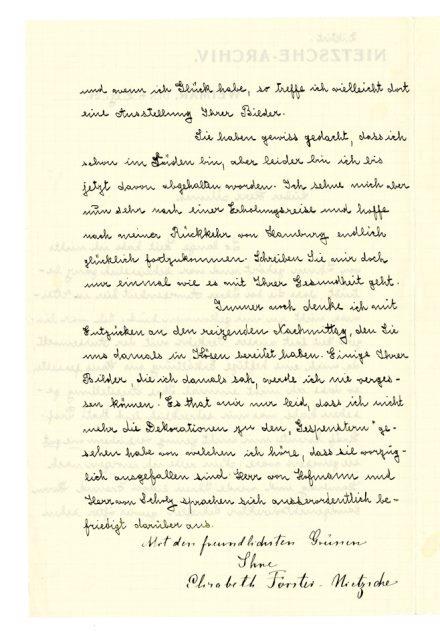 NIETZSCHE-ARCHIV.
und wenn ich Glück habe, so treffe ich vielleicht dort
eine Ausstellung Ihrer Bilder.
Sie haben gewiss gedacht, dass ich
schon im Süden bin, aber leider bin ich bis
jetzt davon abgehalten worden. Ich sehne mich aber
nun sehr nach einer Erholungsreise und hoffe
nach meiner Rückkehr von Hamburg endlich
glücklich fortzukommen. Schreiben Sie mir doch
nur einmal wie es mit Ihrer Gesundheit geht.
Immer noch denke ich mit
Entzücken an den reizenden Nachmittag, den Sie
uns damals in Kösen bereitet haben. Einige Ihrer
Bilder, die ich damals sah, werde ich nie verges-
sen können! Es that mir nur leid, dass ich nicht
mehr die Dekorationen zu den „Gespenstern" ge-
sehen habe von welchen ich höre, dass sie vorzüg-
lich ausgefallen sind. Herr von Hofmann und
Herr von Scholz sprachen sich ausserordentlich be-
friedigt darüber aus.
Mit den freundlichsten Grüssen
Ihre
Elisabeth Förster-Nietzsche